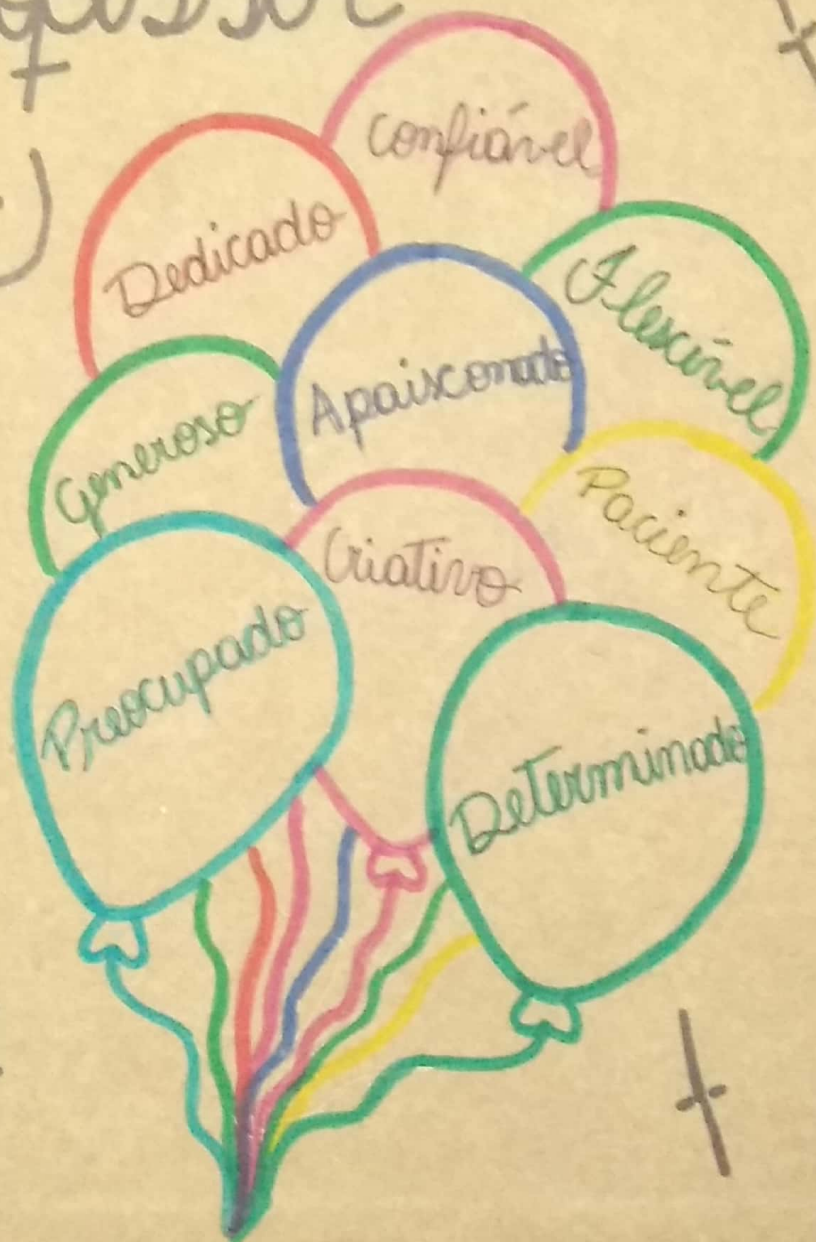 Confiável
Dedicado
Flexível
Apaixonado
Generoso
Paciente
Criativo
Preocupado
Determinado